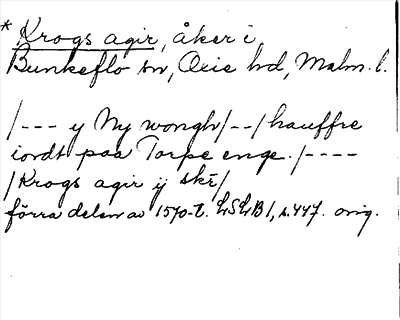 * Krogs agir, åker i
Bunkeflo sn, Oxie hd, Malm. l.
/--- y Ny wongh/--/hauffre
iordt paa Torpe enge./----
/Krogs agir ij skr̄/
förra delen av 1570-t. LSLB1, s. 447. orig.